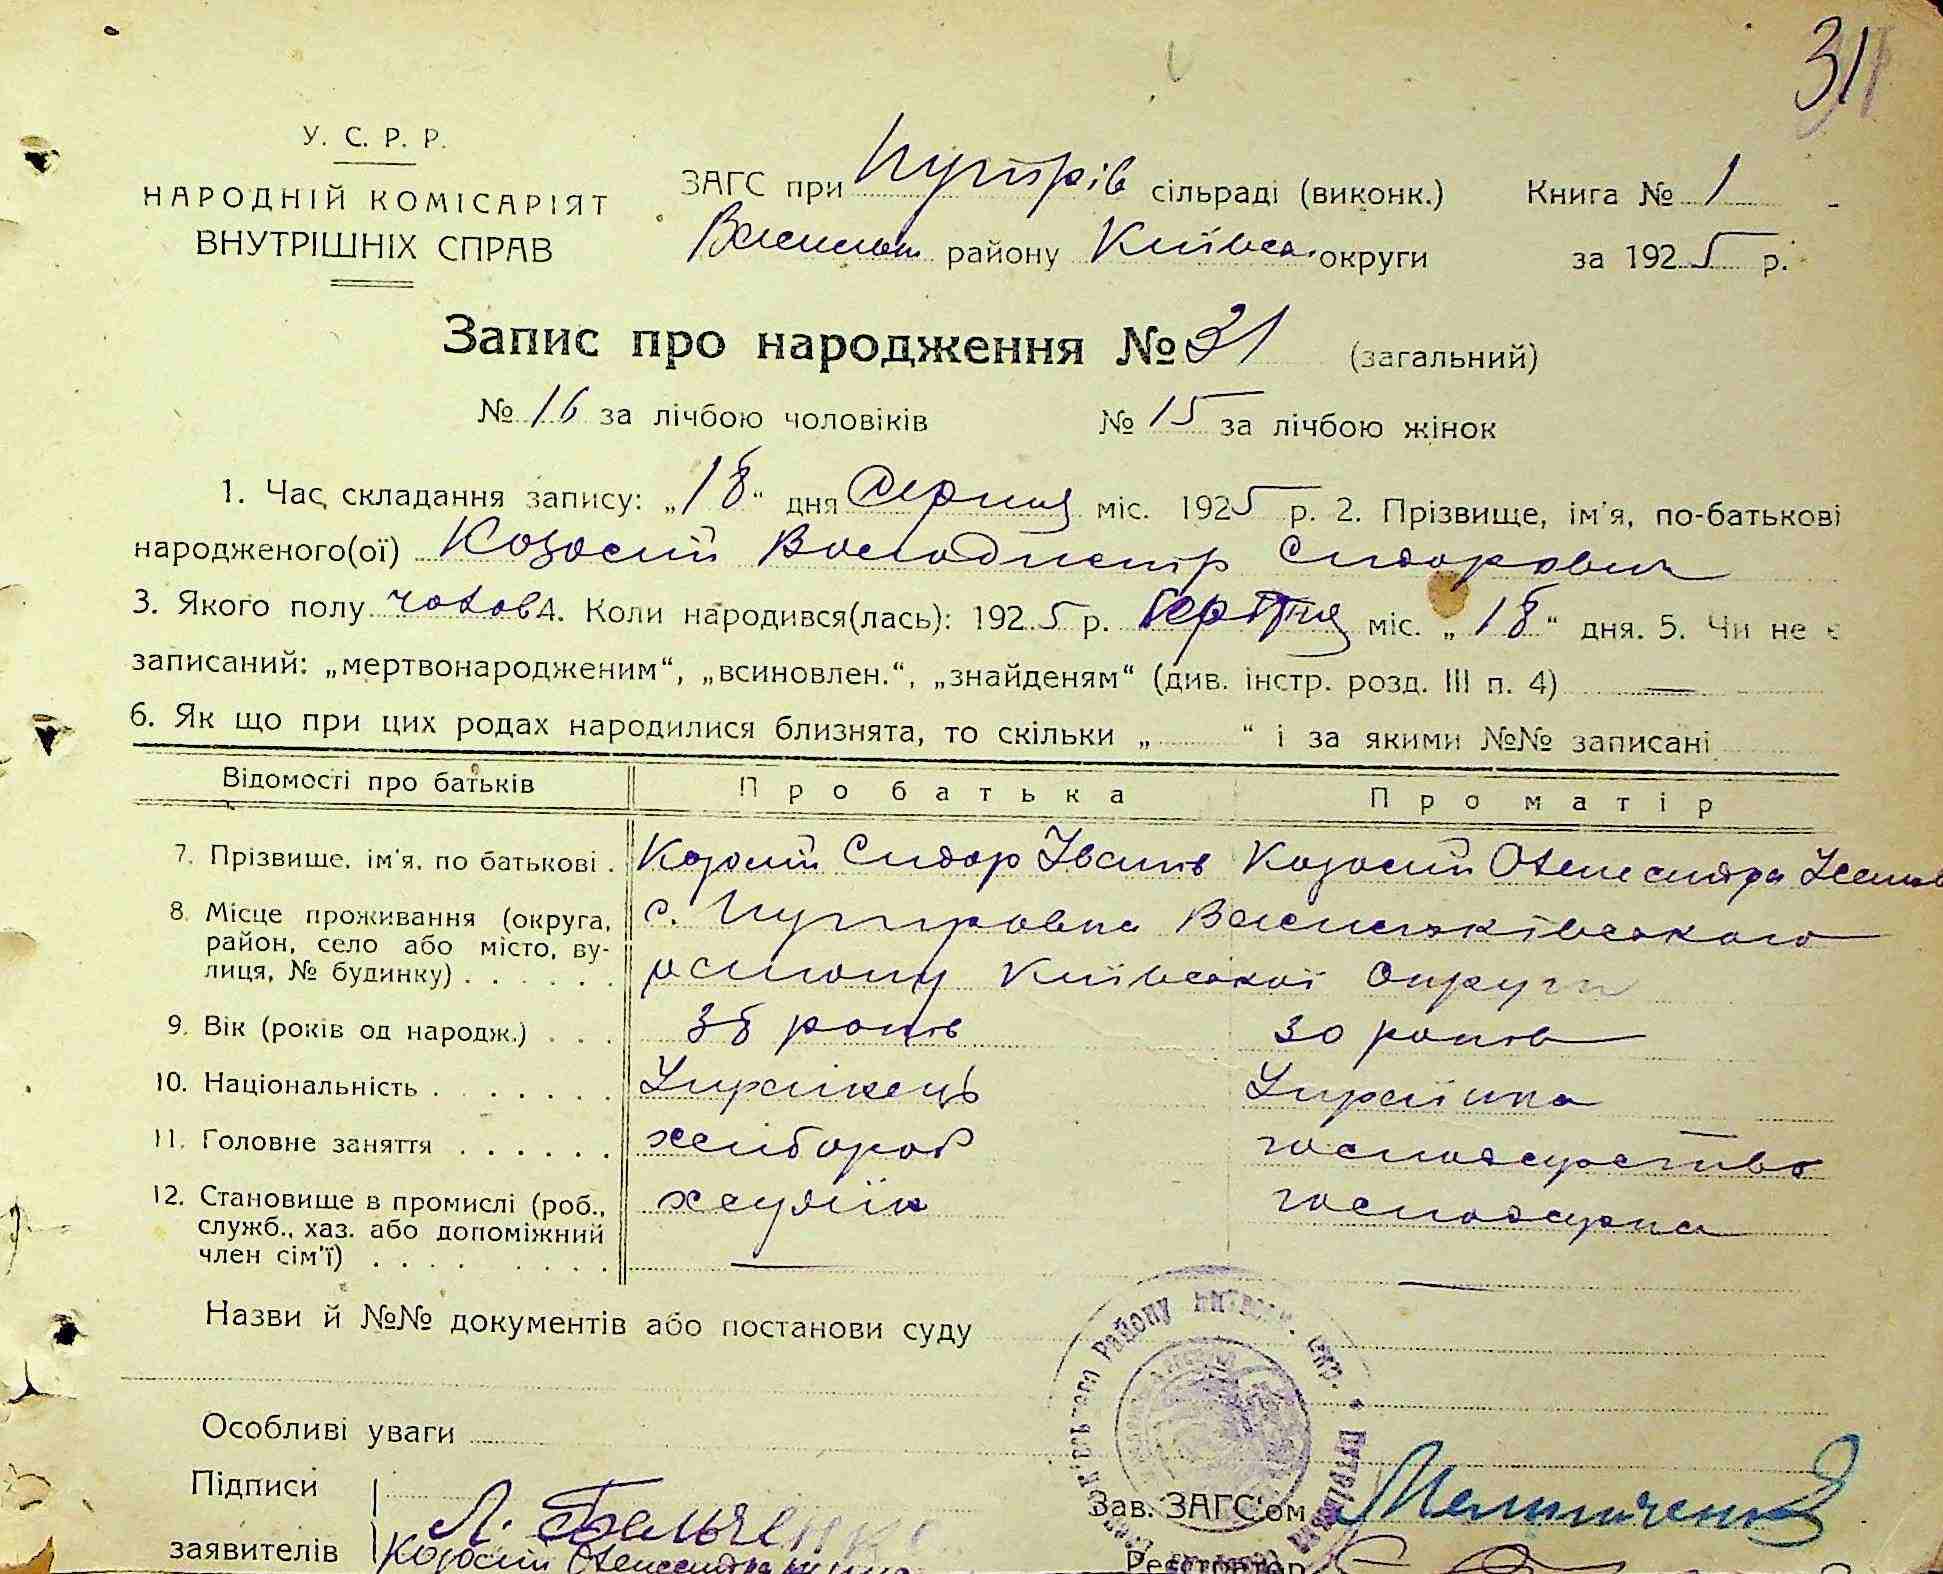 31
У. С. Р. Р.
НАРОДНІЙ КОМІСАРІЯТ
ВНУТРІШНІХ СПРАВ
ЗАГС при Путрів сільраді (виконк.) Книга № 1
району Київськ. округи за 1925 р.
Запис про народження № 31 (загальний)
№ 16 за лічбою чоловіків № 15 за лічбою жінок
1. Час складання запису: „18“ дня Серпня міс. 1925 р. 2. Прізвище, ім'я, по-батькові
народженого(ої) Козосий Володимир Сидорович
3. Якого полу чолов 4. Коли народився(лась): 1925 р. Серпня міс. „18“ дня. 5. Чи не є
записаний: „мертвонародженим“, „всиновлен.“, „знайденям“ (див. інстр. розд. III п. 4) —
6. Як що при цих родах народилися близнята, то скільки „ “ і за якими №№ записані
Відомості про батьків Про батька Про матір
7. Прізвище, ім'я, по батькові . Козосий Сидор Іванів Козосий Олександра
8. Місце проживання (округа, с. Путровка Васильківського
район, село або місто, ву-
лиця, № будинку) . . . . . . Київської Округи
9. Вік (років од народж.) . . . 38 років 30 років
10. Національність . . . . . . . Українець Українка
11. Головне заняття . . . . . . хлібороб господарство
12. Становище в промислі (роб., хазяїн господарка
служб., хаз. або допоміжний
член сім'ї) . . . . . . . . — —
Назви й №№ документів або постанови суду
Особливі уваги
Підписи
Л. Бальченко Зав. ЗАГС'ом Мельниченко
заявителів Козосий Олександра Реєстратор